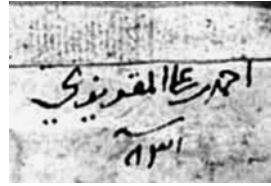 احمد بن علي المقريزي
٨٣١